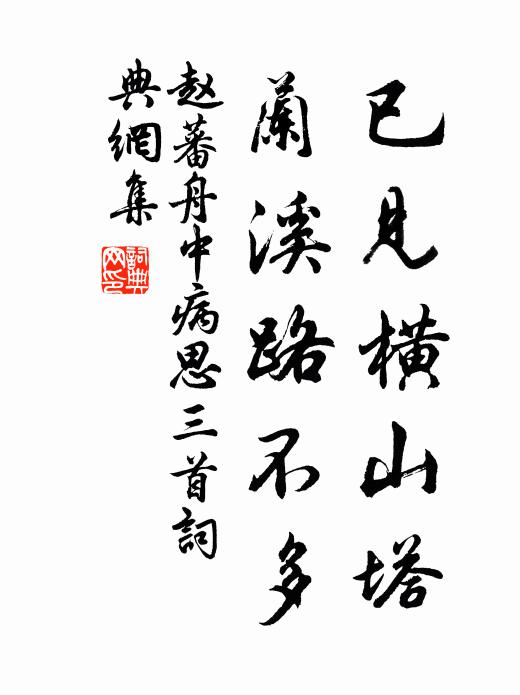 已見橫山塔
蘭溪路不多
赵蕃舟中病思三首詞
典網集
詞典
网印